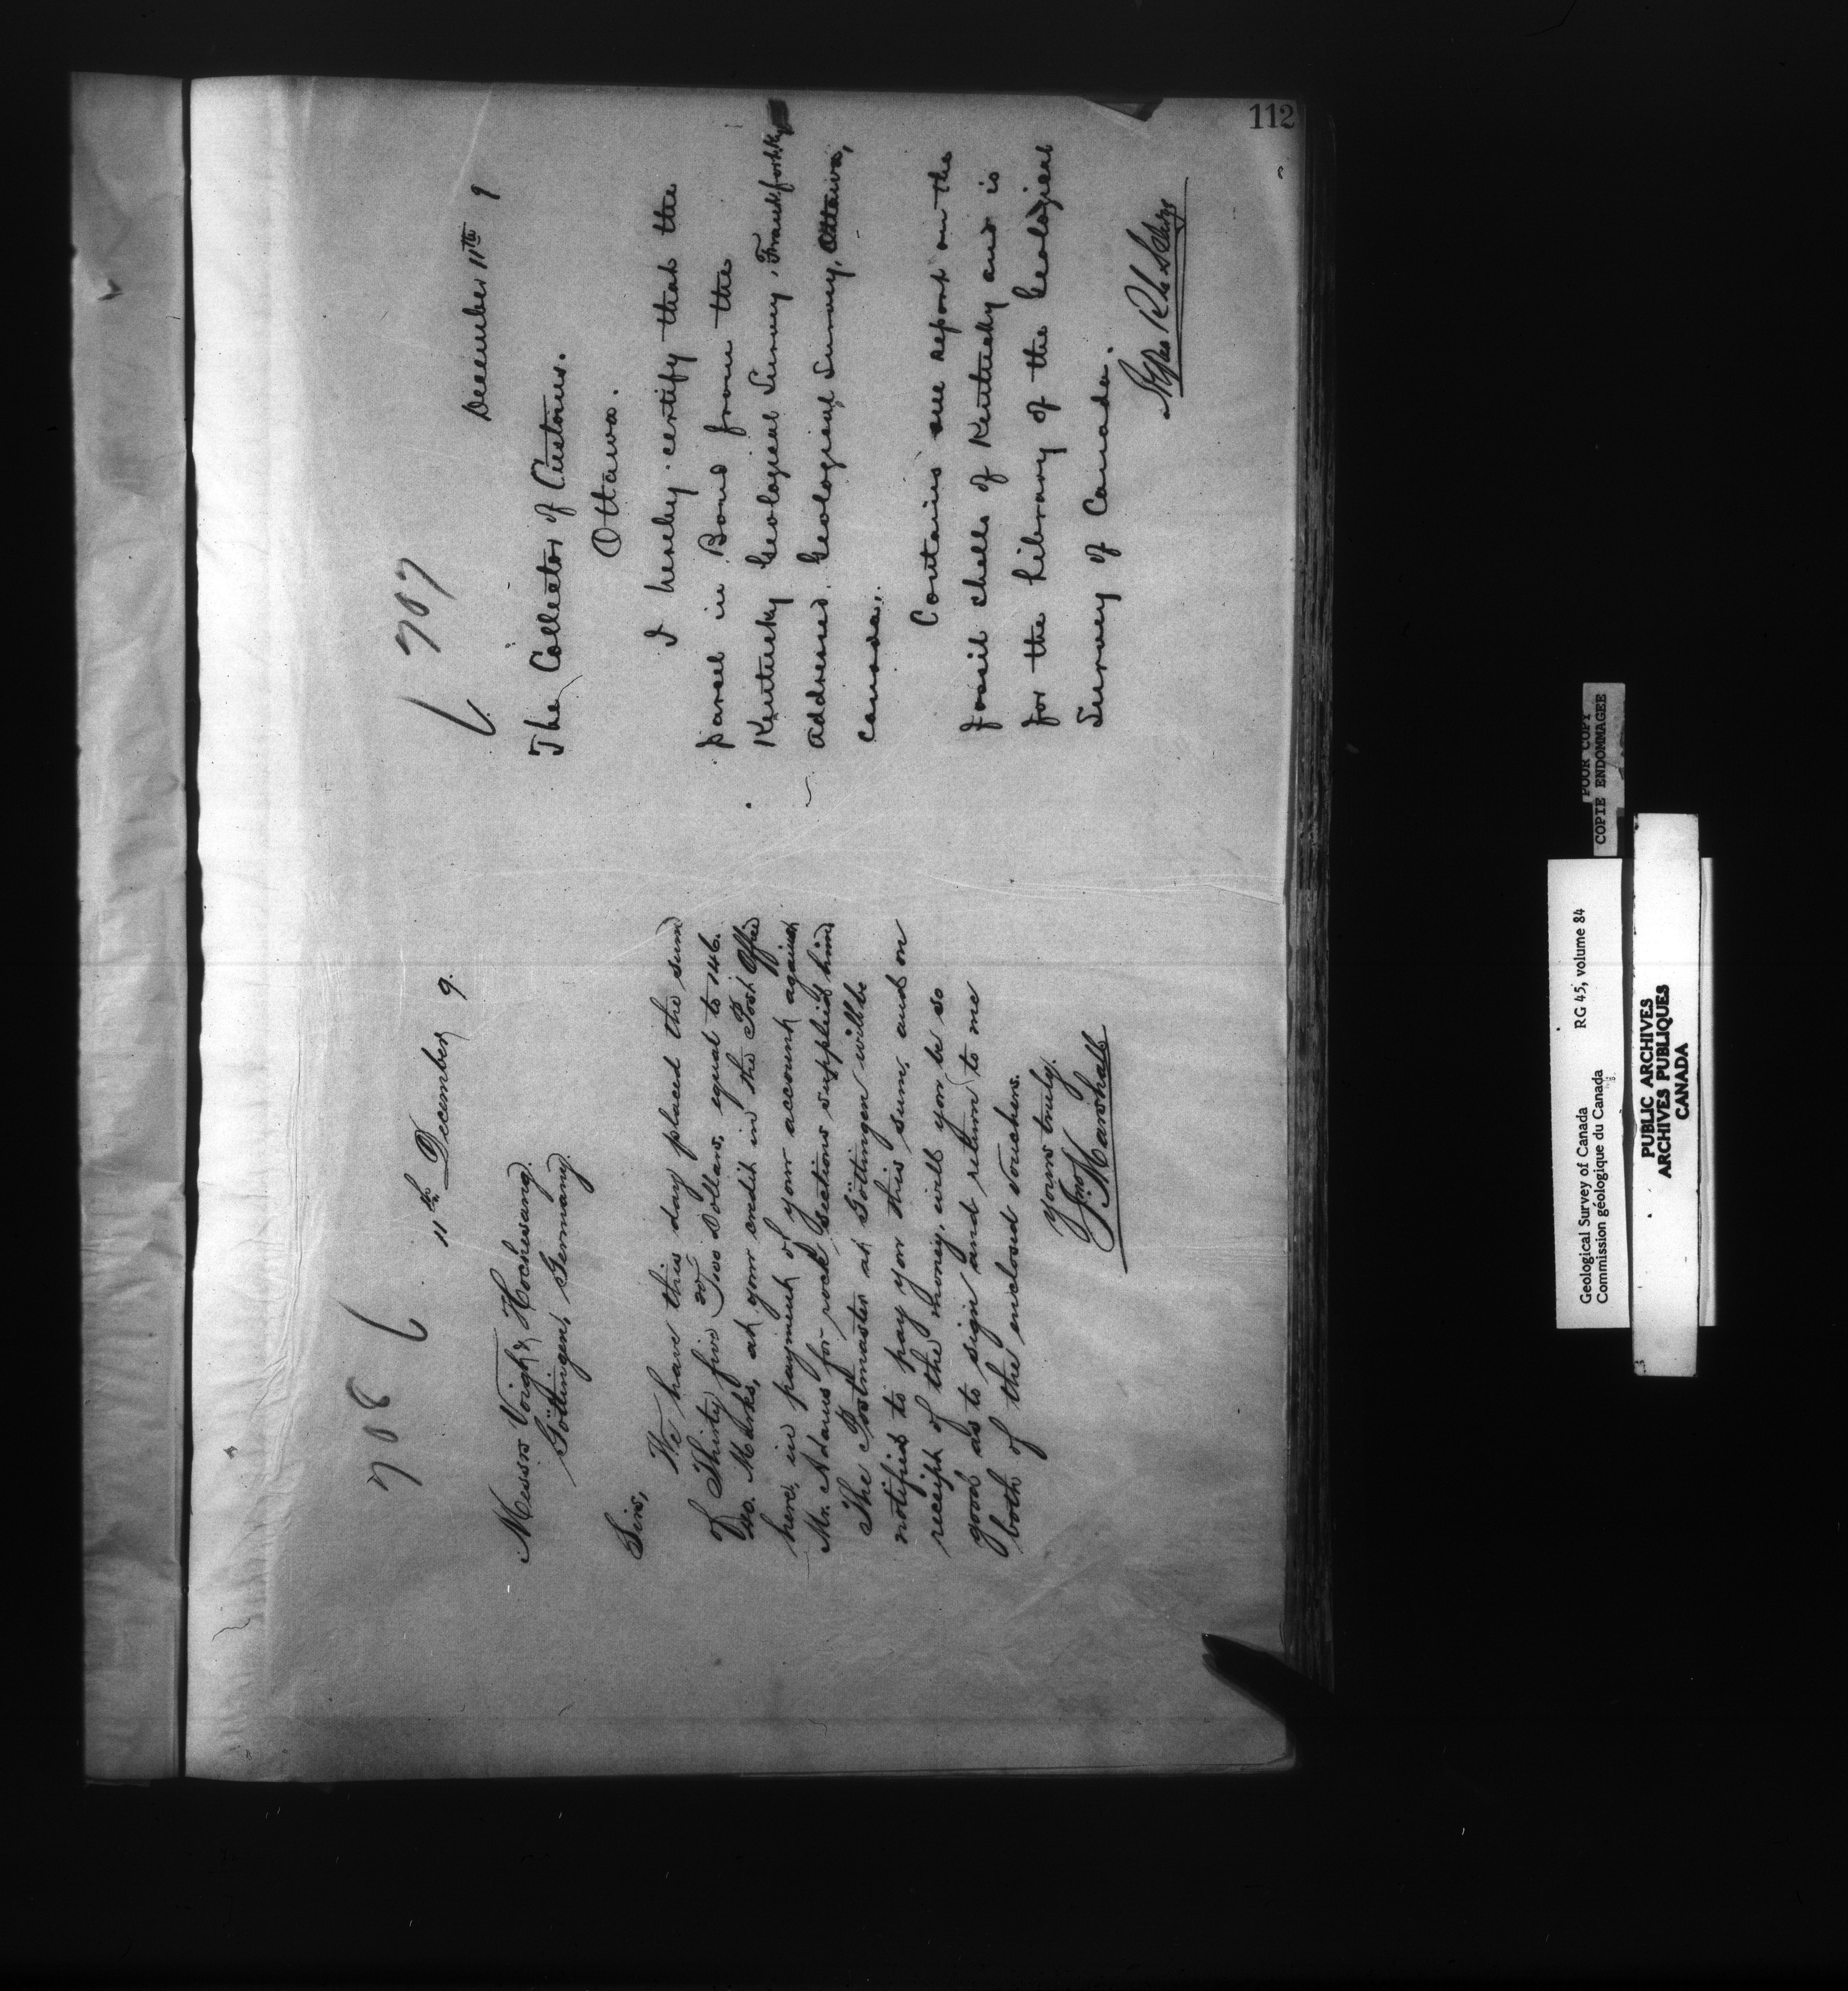 112
708
11th December 9.
Messrs Voigt & Hochgesang.
Göttingen, Germany.
Sirs,
We have this day placed the sum
of Thirty five 20 Two Dollars, equal to 146.
40. Marks, at your credit in the Post Office
here, in payment of your account against
Mr. Adams for rock sections supplied him
The Postmaster at Götingen will be
notified to pay you this sum, and on
receipt of the money, will you be so
good as to sign and return to me
both of the enclosed vouchers.
Yours truly.
Jno Marshall
707
December 11th 9
The Collector of Customs.
Ottawa.
I hereby certify that the
parcel in Bond from the
Kentucky Geological Survey, Frankfort Ky
addressed Geological Survey, Ottawa,
Canada,.
Contains one report on the
fossil shells of Kentucky and is
for the Library of the Geological
Survey of Canada.
POOR COPY
COPIE ENDOMMAGEE
Geological Survey of Canada RG 45, volume 84
Commission géologique du Canada
PUBLIC ARCHIVES
ARCHIVES PUBLIQUES
CANADA